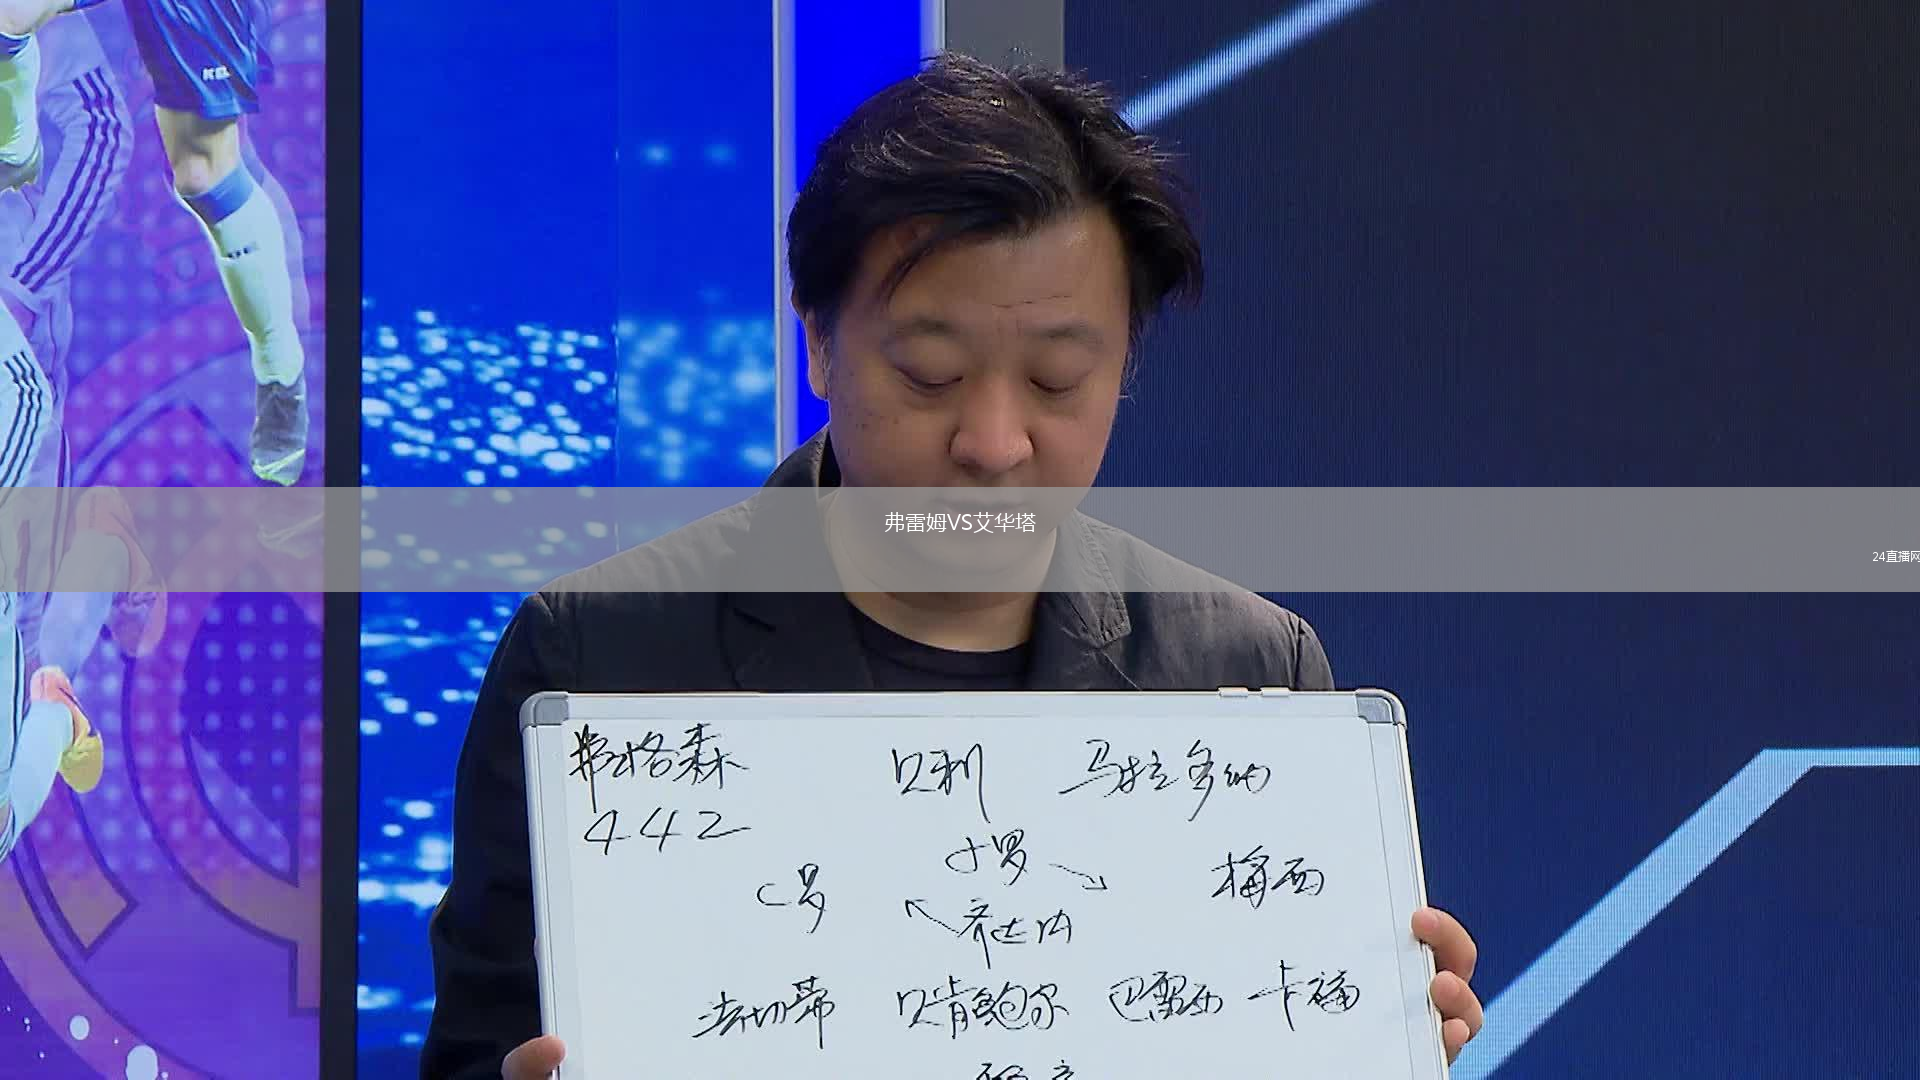 KEL
弗雷姆VS艾华塔
24直播网
弗格森
442
贝利 马拉多纳
小罗
C罗 梅西
齐达内
法切蒂 贝肯鲍尔 巴雷西 卡福